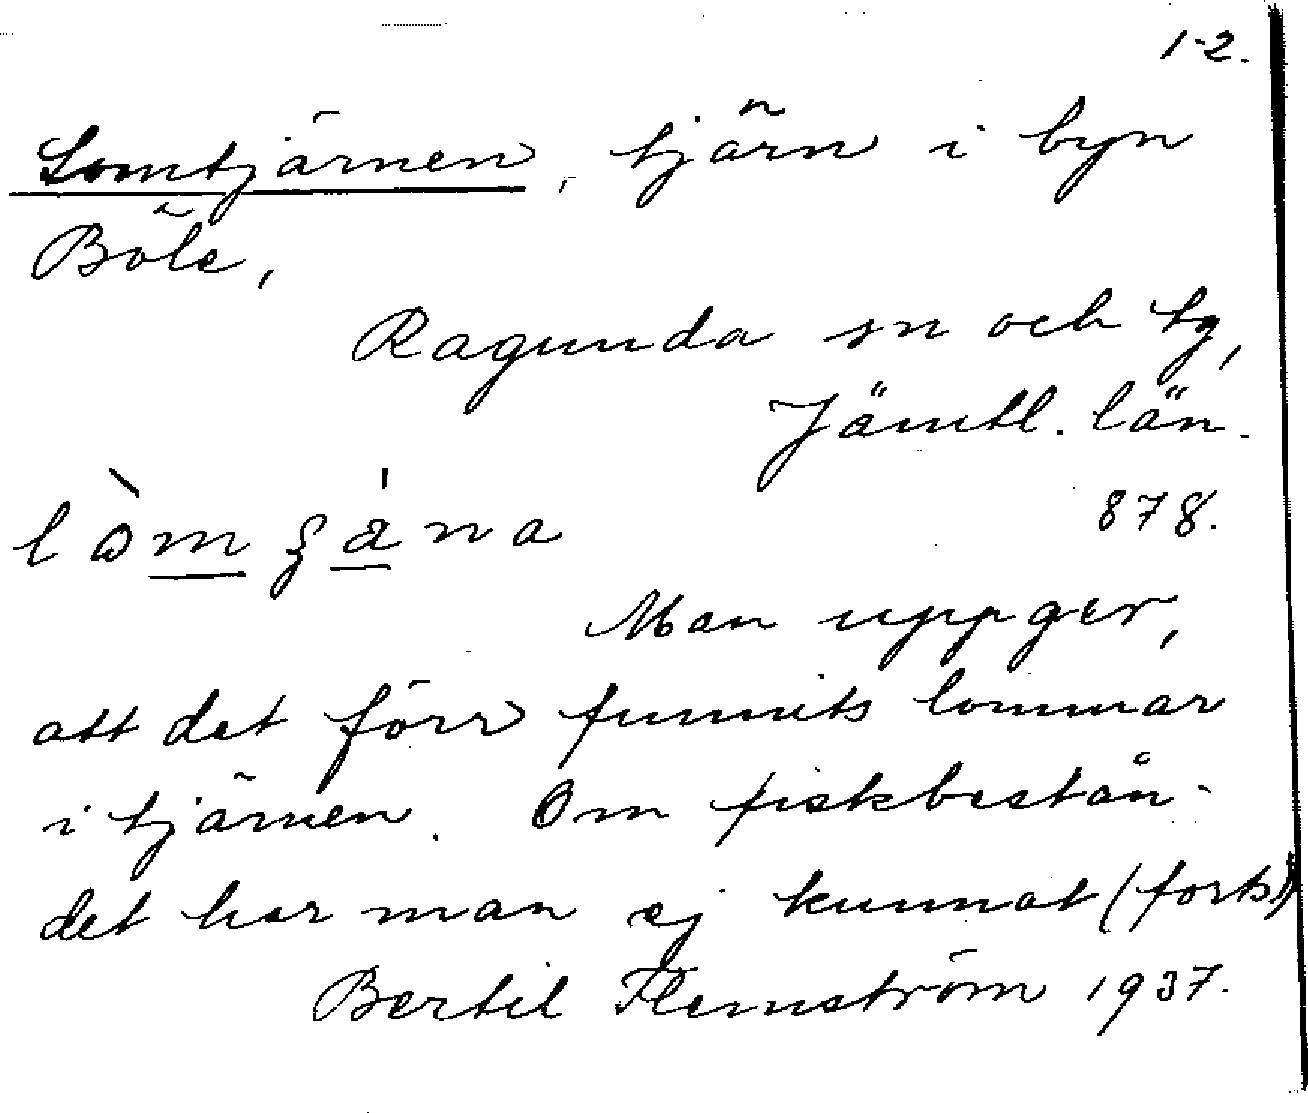 1-2.
Lomtjärnen, tjärn i byn
Böle,
Ragunda sn och tg,
Jämtl. län.
878.
Man uppger,
att det förr funnits lommar
i tjärnen. Om fiskbestån-
det har man ej kunnat (forts)
Bertil Flemström 1937.